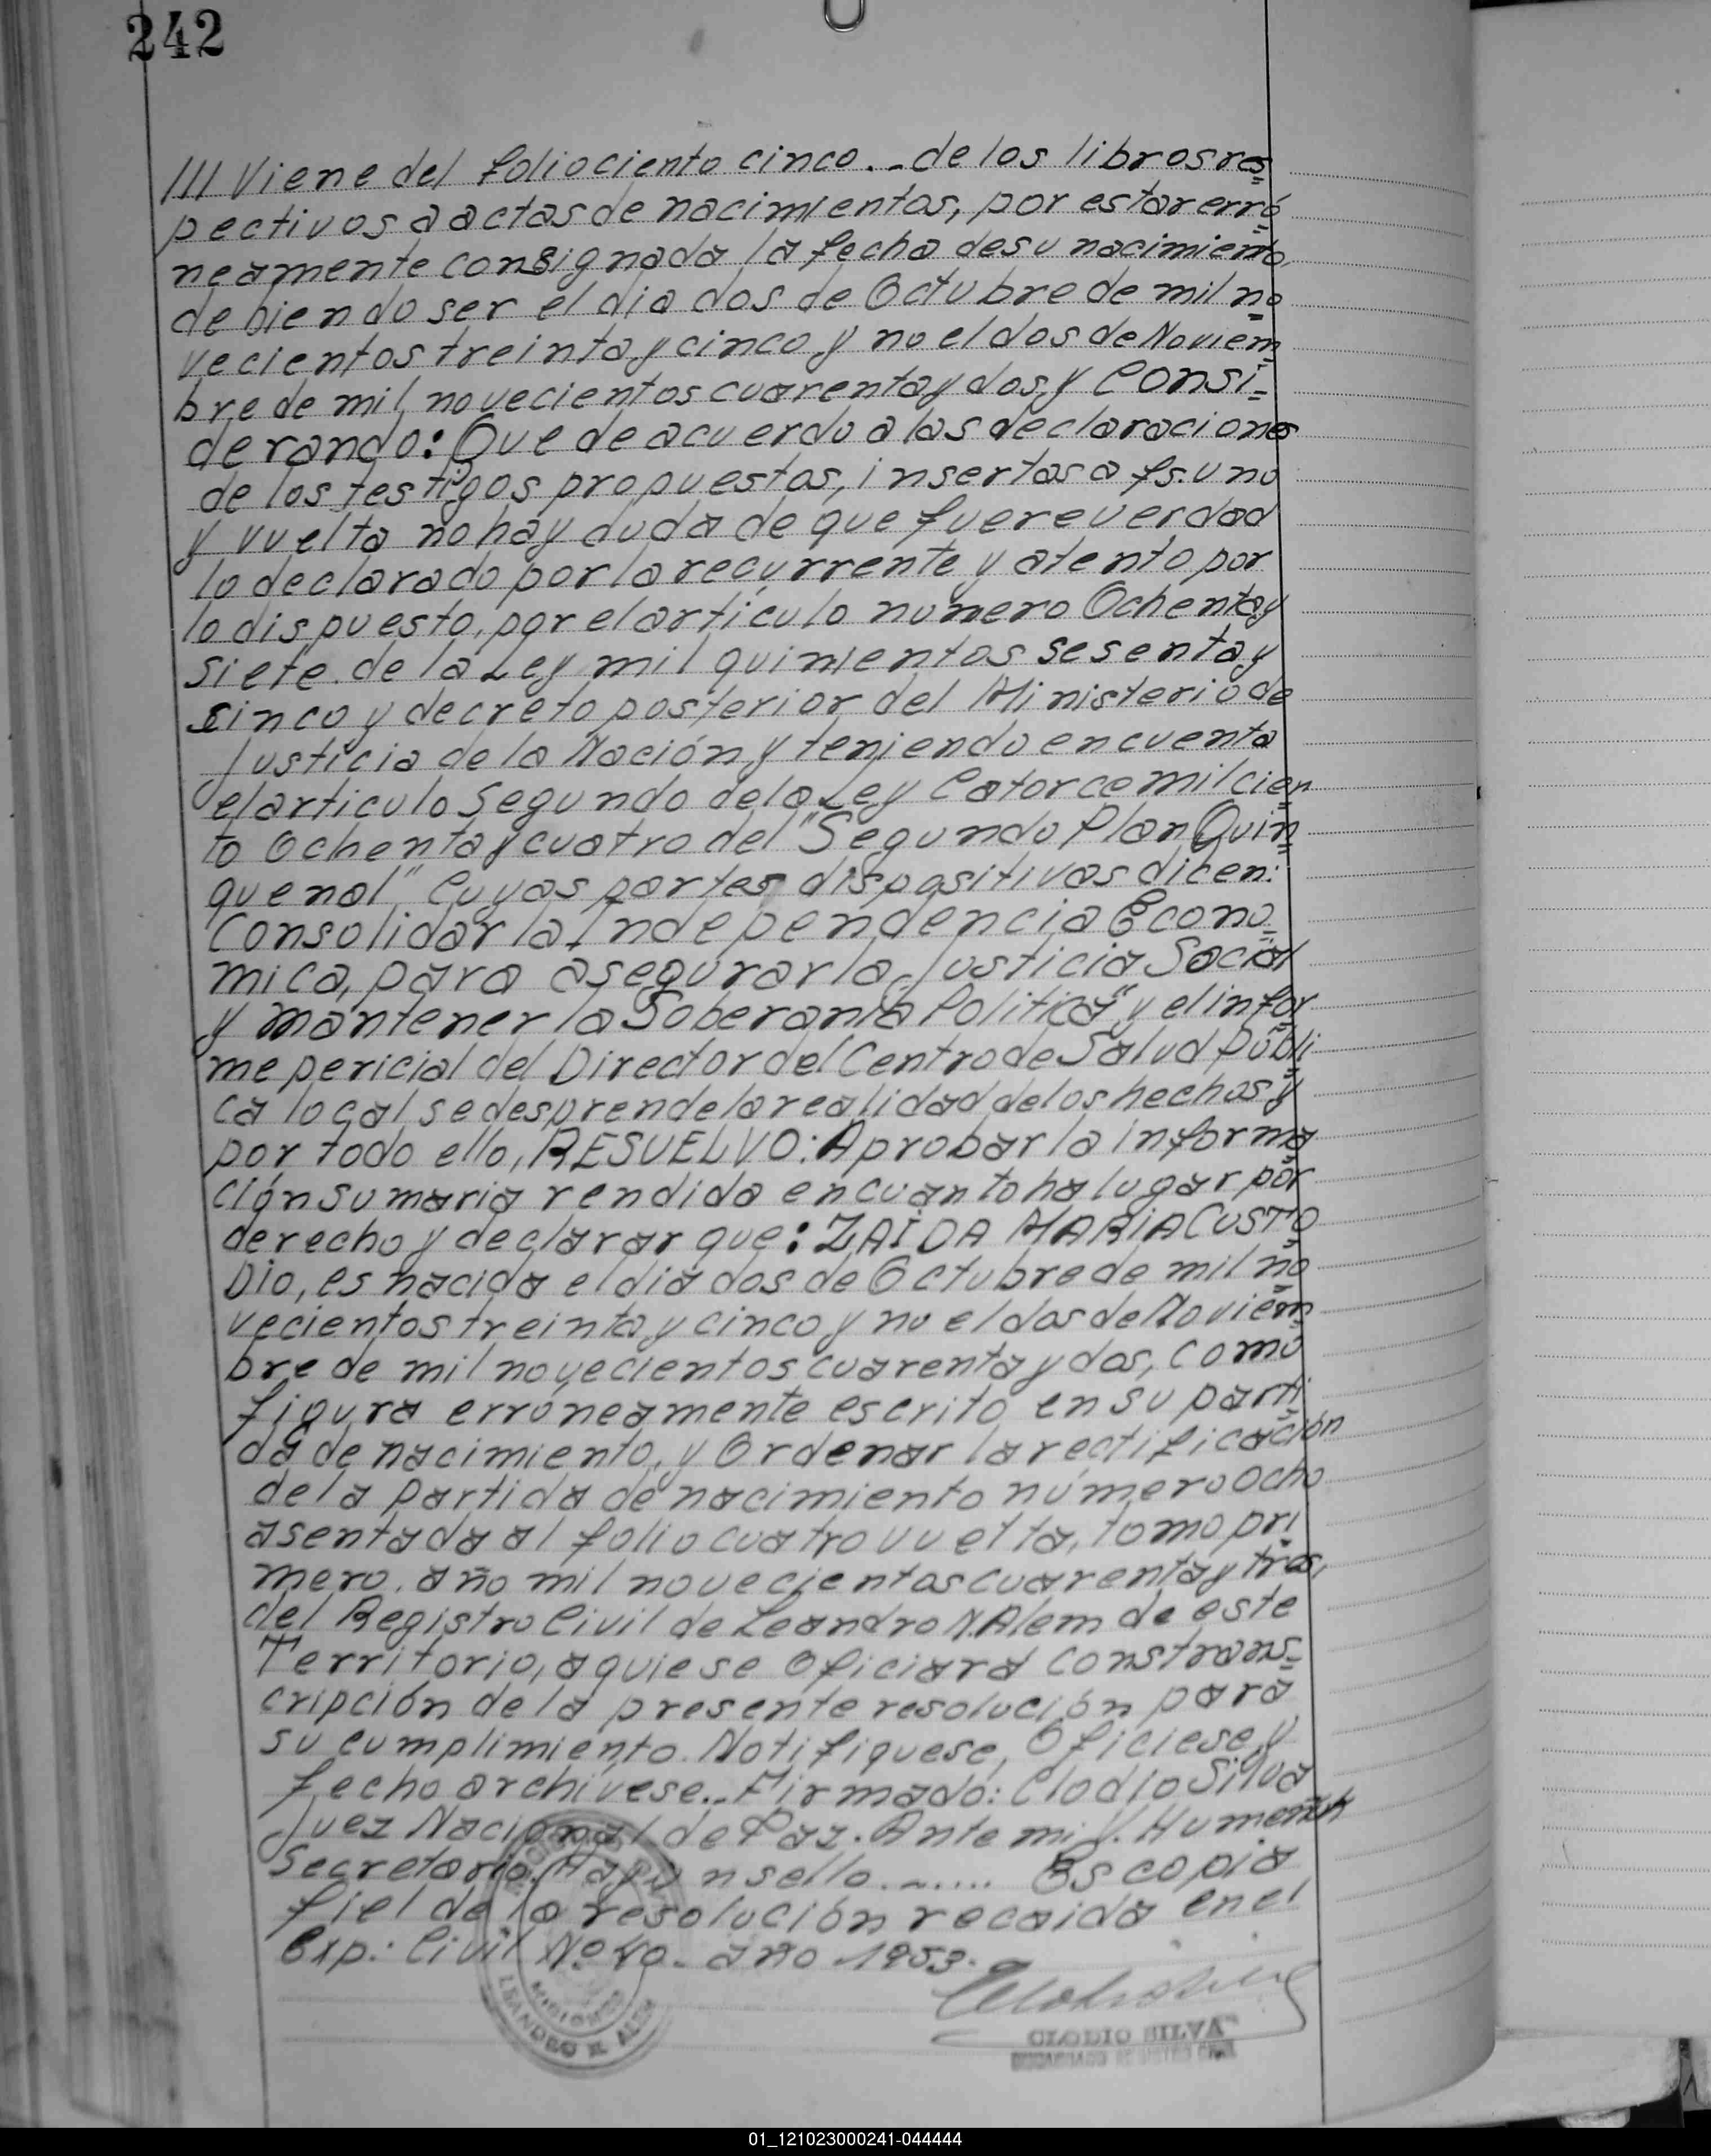 242
/// Viene del folio ciento cinco..- de los libros res=
pectivos a actas de nacimientos, por estar erró=
neamente consignada la fecha de su nacimiento,
debiendo ser el dia dos de Octubre de mil no=
vecientos treinta y cinco y no el dos de Noviem=
bre de mil novecientos cuarenta y dos, y Consi=
derando: Que de acuerdo a las declaraciones
de los testigos propuestos, insertas a fs. uno
y vuelta no hay duda de que fuere verdad
lo declarado por la recurrente y atento por
lo dispuesto, por el artículo numero Ochenta y
siete de la Ley mil quinientos sesenta y
cinco y decreto posterior del Ministerio de
Justicia de la Nación y teniendo en cuenta
el articulo segundo de la Ley Catorce mil cien=
to Ochenta y cuatro del "Segundo Plan Quin=
quenal" Cuyas partes dispositivas dicen:
Consolidar la Independencia Econo=
mica, para asegurar la Justicia Social
y mantener la Soberanía Politica" y el infor=
me pericial del Director del Centro de Salud Públi=
ca local se desprende la realidad de los hechos y
por todo ello, RESUELVO: Aprobar la informa=
ción sumaria rendida en cuanto ha lugar por
derecho y declarar que: ZAIDA MARIA CUSTO=
DIO, es nacida el dia dos de Octubre de mil no=
vecientos treinta y cinco y no el dos de Noviem=
bre de mil novecientos cuarenta y dos, como
figura erróneamente escrito en su parti=
da de nacimiento, y Ordenar la rectificación
de la partida de nacimiento número Ocho
asentada al folio cuatro vuelta, tomo pri=
mero, año mil novecientos cuarenta y tres,
del Registro Civil de Leandro N. Alem de este
Territorio, a quie se Oficiará con strans=
cripción de la presente resolución para
su cumplimiento. Notifiquese, Oficiese, y
fecho archívese..- Firmado: Clodio Silva
Juez Nacional de Paz. Ante mi, V. Humeñuk
Secretario. Hay un sello. - ..... Es copia
fiel de la resolución recaida en el
Exp.: Civil No 40. año 1953.-
CLODIO SILVA
ENCARGADO REGISTRO CIVIL
MISIONES
LEANDRO N. ALEM
01_121023000241-044444